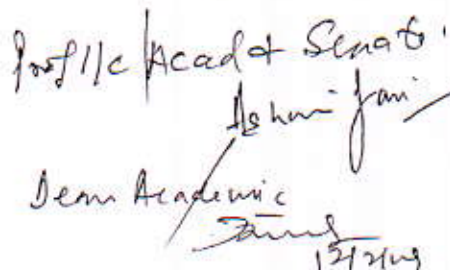 Prof I/c Acad & Senate
Ashwini Jain
Dean Academic